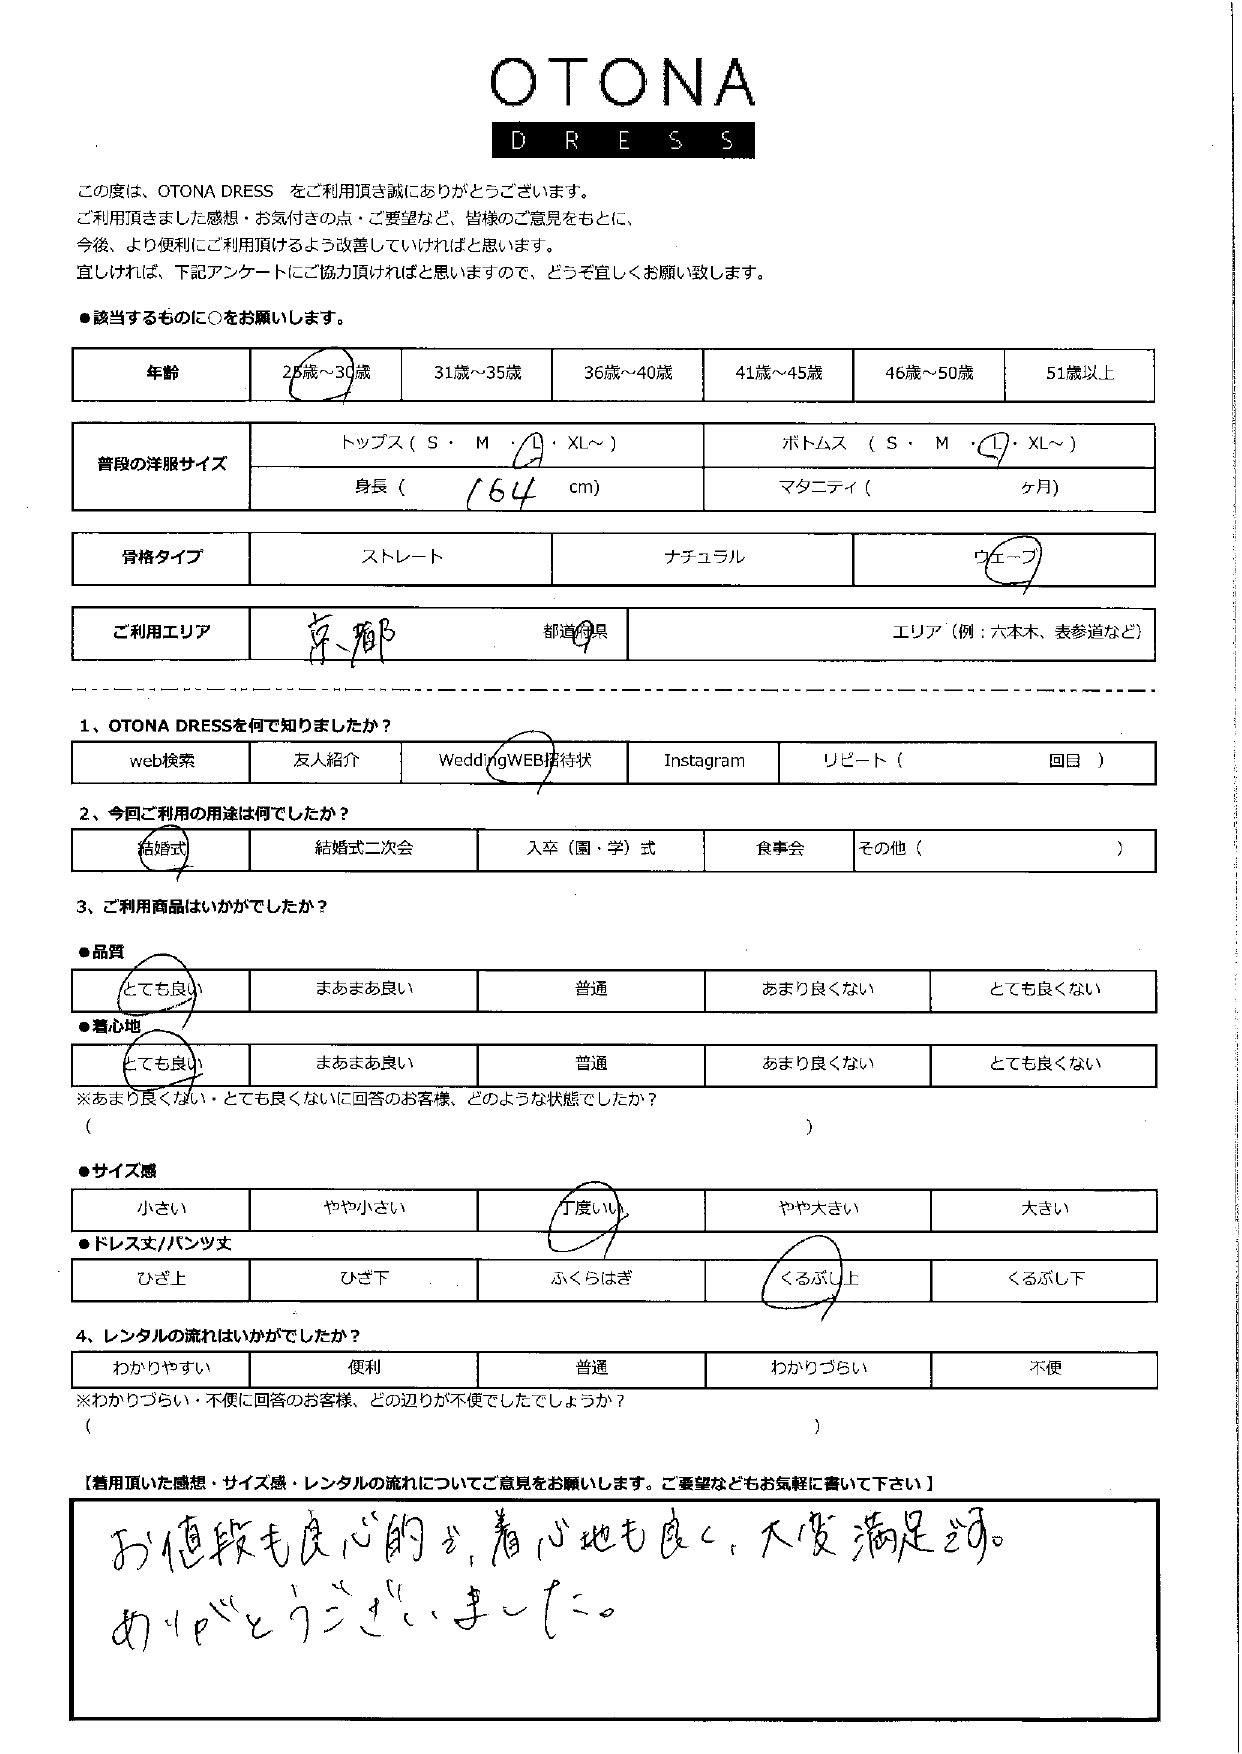 OTONA
DRESS
この度は、OTONA DRESS をご利用頂き誠にありがとうございます。
ご利用頂きました感想・お気付きの点・ご要望など、皆様のご意見をもとに、
今後、より便利にご利用頂けるよう改善していければと思います。
宜しければ、下記アンケートにご協力頂ければと思いますので、どうぞ宜しくお願い致します。
●該当するものに○をお願いします。
年齢 25歳～30歳 31歳～35歳 36歳～40歳 41歳～45歳 46歳～50歳 51歳以上
普段の洋服サイズ トップス ( S ・ M ・ L ・ XL～ ) ボトムス ( S ・ M ・ L ・ XL～ )
身長 ( 164 cm) マタニティ ( ヶ月)
骨格タイプ ストレート ナチュラル ウェーブ
ご利用エリア 京都 都道府県 エリア（例：六本木、表参道など）
1、OTONA DRESSを何で知りましたか？
web検索 友人紹介 WeddingWEB招待状 Instagram リピート ( 回目 )
2、今回ご利用の用途は何でしたか？
結婚式 結婚式二次会 入卒（園・学）式 食事会 その他 ( )
3、ご利用商品はいかがでしたか？
●品質
とても良い まあまあ良い 普通 あまり良くない とても良くない
●着心地
とても良い まあまあ良い 普通 あまり良くない とても良くない
※あまり良くない・とても良くないに回答のお客様、どのような状態でしたか？
( )
●サイズ感
小さい やや小さい 丁度いい やや大きい 大きい
●ドレス丈/パンツ丈
ひざ上 ひざ下 ふくらはぎ くるぶし上 くるぶし下
4、レンタルの流れはいかがでしたか？
わかりやすい 便利 普通 わかりづらい 不便
※わかりづらい・不便に回答のお客様、どの辺りが不便でしたでしょうか？
( )
【着用頂いた感想・サイズ感・レンタルの流れについてご意見をお願いします。ご要望などもお気軽に書いて下さい】
お値段も良心的で、着心地も良く、大変満足です。
ありがとうございました。